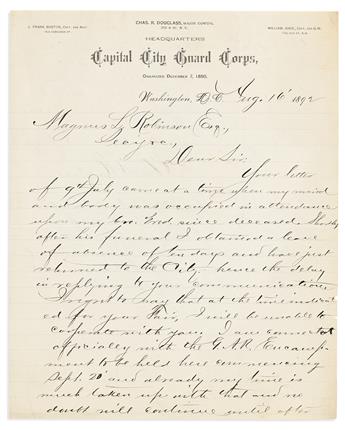 CHAS. R. DOUGLASS, MAJOR COMD'G,
J. FRANK BOSTON, CAPT. AND ADJT.
HEADQUARTERS
Capital City Guard Corps,
ORGANIZED DECEMBER 7, 1880.
Washington, D.C. Aug. 16' 1892
Magnus L. Robinson Esq.,
Dear Sir:
Your letter
of 9th July came at a time when my mind
and body was occupied in attendance
upon my bro. Fred. since deceased. Shortly
after his funeral I obtained a leave
of absence of ten days and have just
returned to the City, hence the delay
in replying to your communication.
I regret to say that at the time indicat
ed for your Fair, I will be unable to
cooperate with you. I am connected
officially with the G.A.R. Encamp-
ment to be held here commencing
Sept. 20' and already my time is
much taken up with that and no
doubt will continue until after